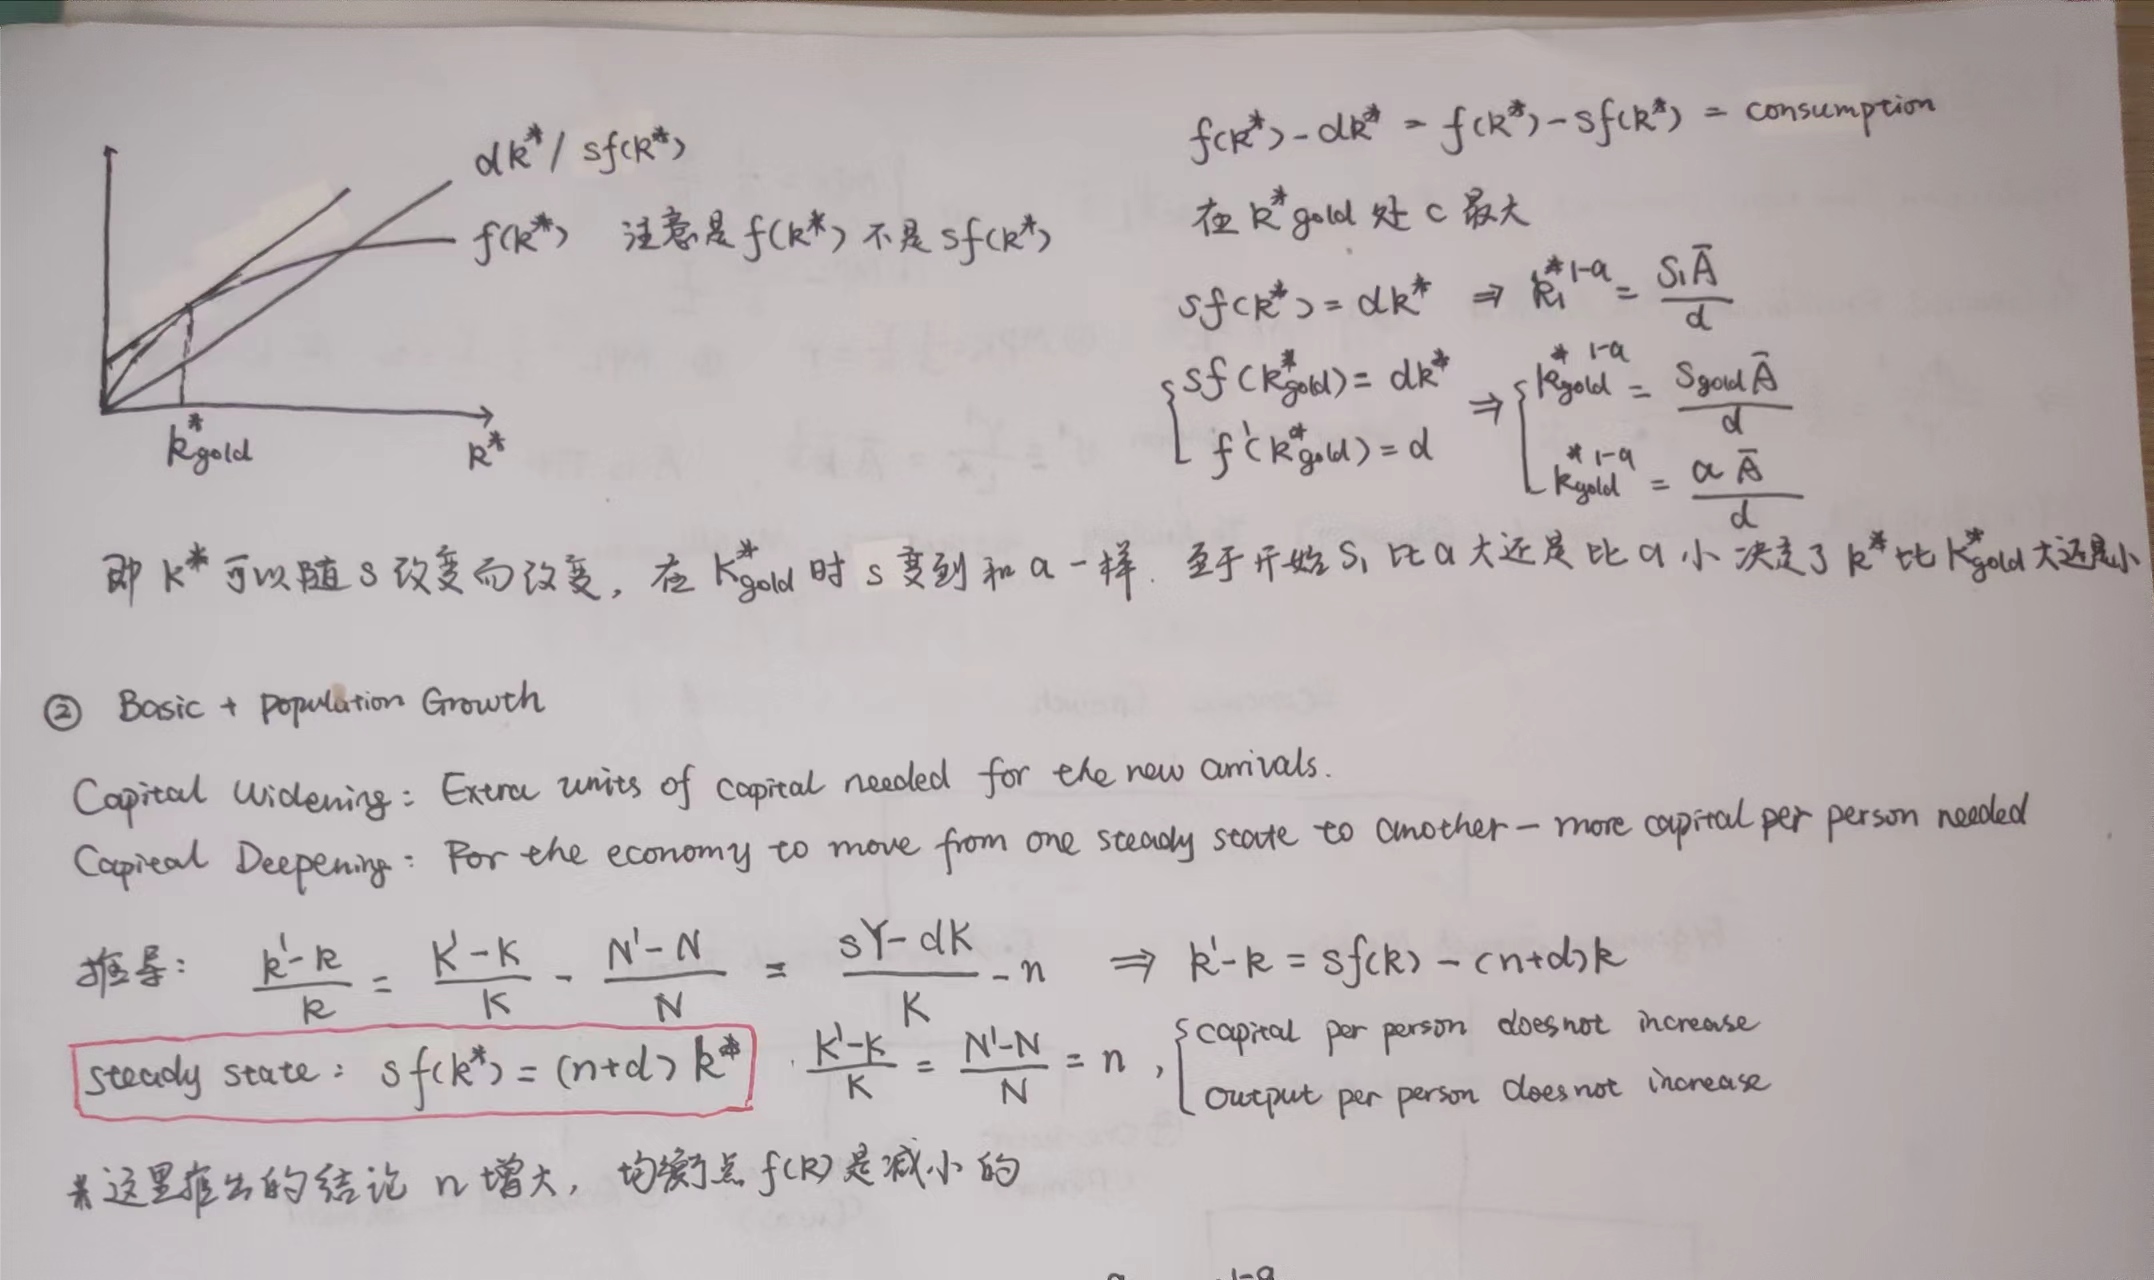 dk*/ sf(k*)
f(k*) 注意是f(k*) 不是sf(k*)
k*gold
k*
f(k*) - dk* = f(k*) - sf(k*) = consumption
在 k*gold 处 c 最大
sf(k*) = dk* ⇒ k₁*^(1-a) = S₁Ā/d
{ sf(k*gold) = dk* ⇒ { k*gold^(1-a) = SgoldĀ/d
f'(k*gold) = d k*gold^(1-a) = aĀ/d
即 k* 可以随 s 改变而改变, 在 k*gold 时 s 变到和 a 一样. 至于开始 S₁ 比 a 大还是比 a 小 决定了 k* 比 k*gold 大还是小
② Basic + population Growth
Capital Widening: Extra units of capital needed for the new arrivals.
Capital Deepening: For the economy to move from one steady state to another - more capital per person needed
推导: (k'-k)/k = (K'-K)/K - (N'-N)/N = (sY-dK)/K - n ⇒ k'-k = sf(k) - (n+d)k
steady state: sf(k*) = (n+d) k* . (K'-K)/K = (N'-N)/N = n , { capital per person does not increase
output per person does not increase
* 这里推出的结论 n 增大, 均衡点 f(k) 是减小的